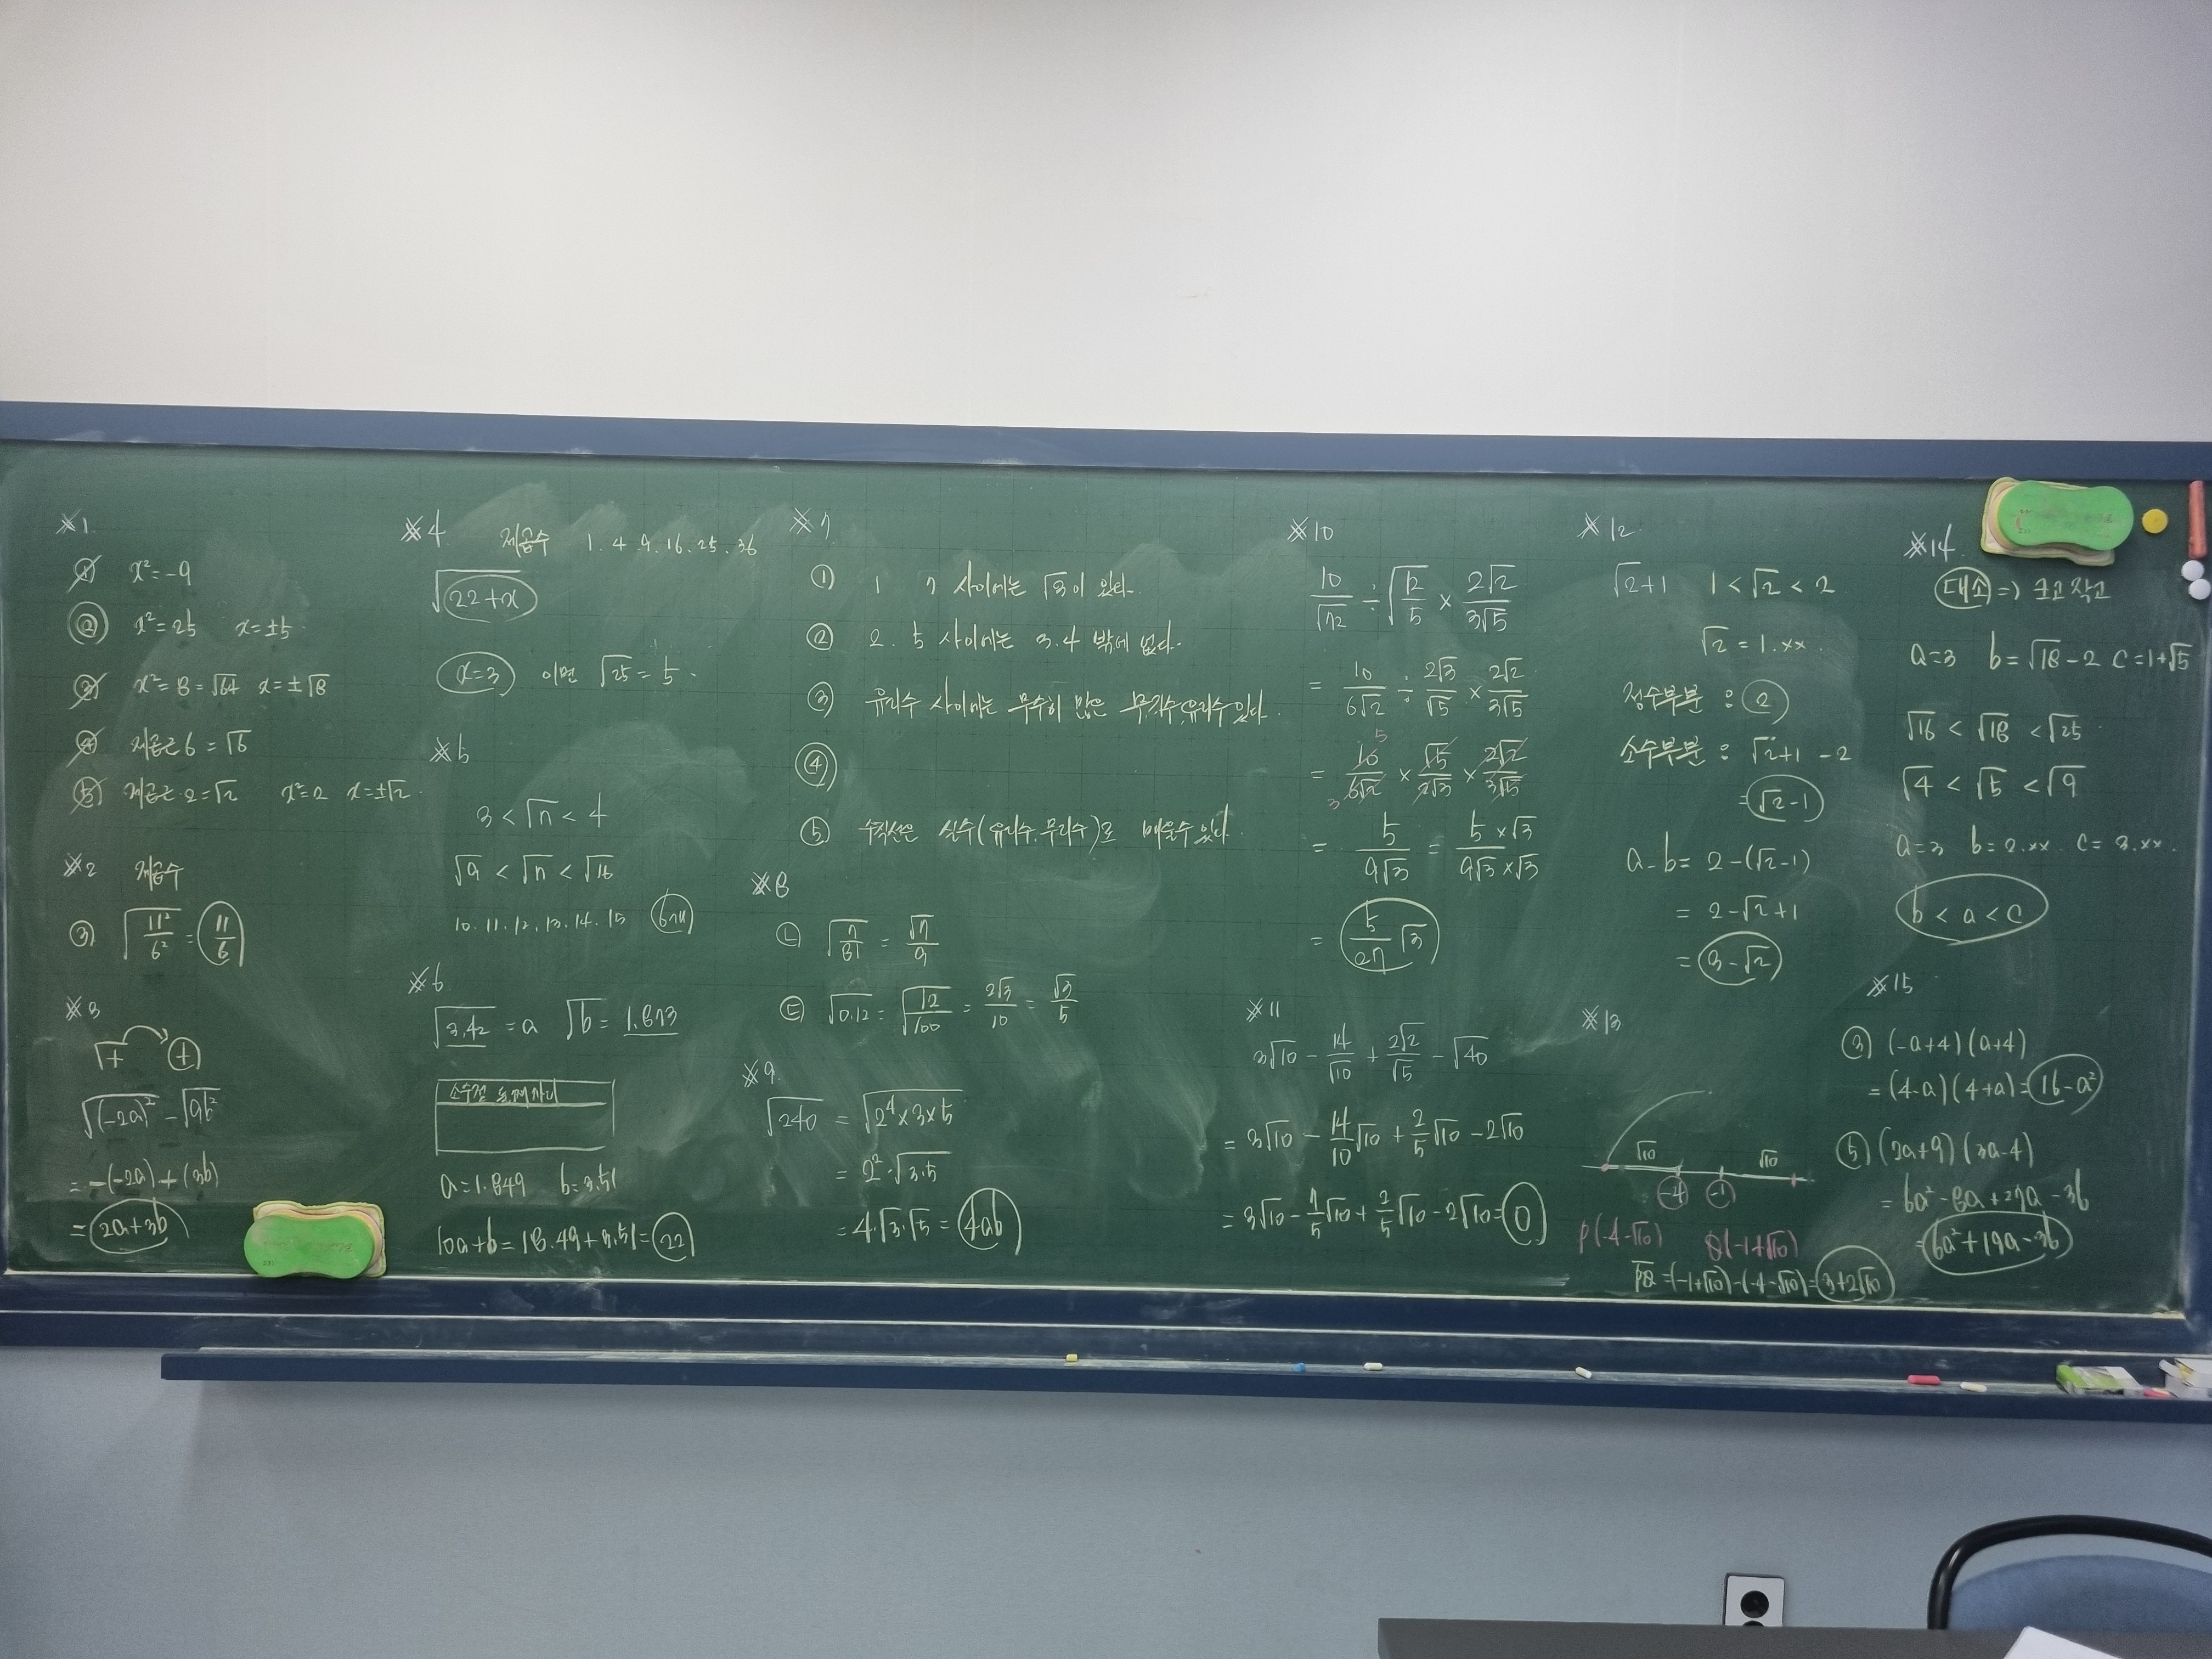 ※1
① x²=-9
② x²=25 x=±5
③ x²=8=√64 x=±√8
④ 제곱근 6 = √6
⑤ 제곱근 2=√2 x²=2 x=±√2
※2 제곱수
③ √(11²/6²) = 11/6
※3
√+ (+)
√(-2a)² - √9b²
= -(-2a)+(3b)
= 2a+3b
※4 제곱수 1. 4. 9. 16. 25. 36
√22+x
x=3 이면 √25 = 5.
※5
3 < √n < 4
√9 < √n < √16
10. 11. 12. 13. 14. 15 6개
※6.
√3.42 = a √b = 1.873
소수점 둘째자리
a=1.849 b=3.51
10a+b = 18.49+3.51 = 22
※7
① 1 7 사이에는 √3이 있다.
② 2. 5 사이에는 3.4 밖에 없다.
③ 유리수 사이에는 무수히 많은 무리수,유리수 있다.
④
⑤ 수직선은 실수(유리수.무리수)로 메울수 있다.
※8
㉡ √(7/81) = √7/9
㉢ √0.12 = √(12/100) = 2√3/10 = √3/5
※9.
√240 = √2⁴×3×5
= 2²·√3·5
= 4·√3·√5 = 4ab
※10
10/√72 ÷ √(12/5) × 2√2/3√5
= 10/6√2 ÷ 2√3/√5 × 2√2/3√5
= 10/6√2 × √5/2√3 × 2√2/3√5 5 3
= 5/9√3 = 5×√3/9√3×√3
= 5/27 √3
※11
3√10 - 14/√10 + 2√2/√5 - √40
= 3√10 - 14/10 √10 + 2/5 √10 - 2√10
= 3√10 - 7/5 √10 + 2/5 √10 - 2√10 = 0
※12
√2+1 1 < √2 < 2
√2 = 1.××.
정수부분 : 2
소수부분 : √2+1 -2
= √2-1
a-b = 2-(√2-1)
= 2-√2+1
= 3-√2
※13
√10 √10
-4 -1
P(-4-√10) Q(-1+√10)
PQ = (-1+√10)-(-4-√10) = 3+2√10
※14
대소 => 크고 작고
a=3 b=√18-2 c=1+√5
√16 < √18 < √25
√4 < √5 < √9
a=3 b=2.×× c=3.××.
b < a < c
※15
③ (-a+4)(a+4)
= (4-a)(4+a) = 16-a²
⑤ (2a+9)(3a-4)
= 6a²-8a+27a-36
= 6a²+19a-36